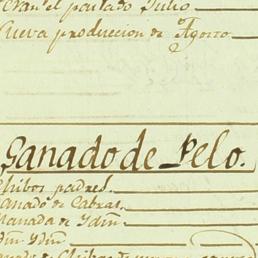 el pasado Julio
Nueva produccion de Agosto
Ganado de Pelo.
Chibos padres
Ganado de Cabras
Manada de Ydm̃
Ydm̃ Ydm̃
de